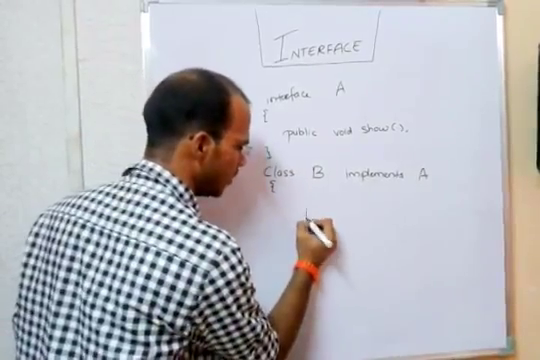 INTERFACE
interface A
{
public void show();
}
Class B implements A
{